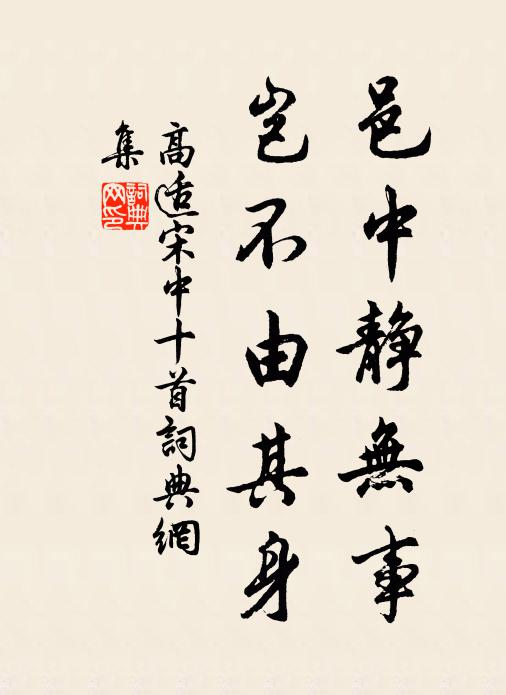 邑中静無事
豈不由其身
高適宋中十首詞典網
集
詞典
网印